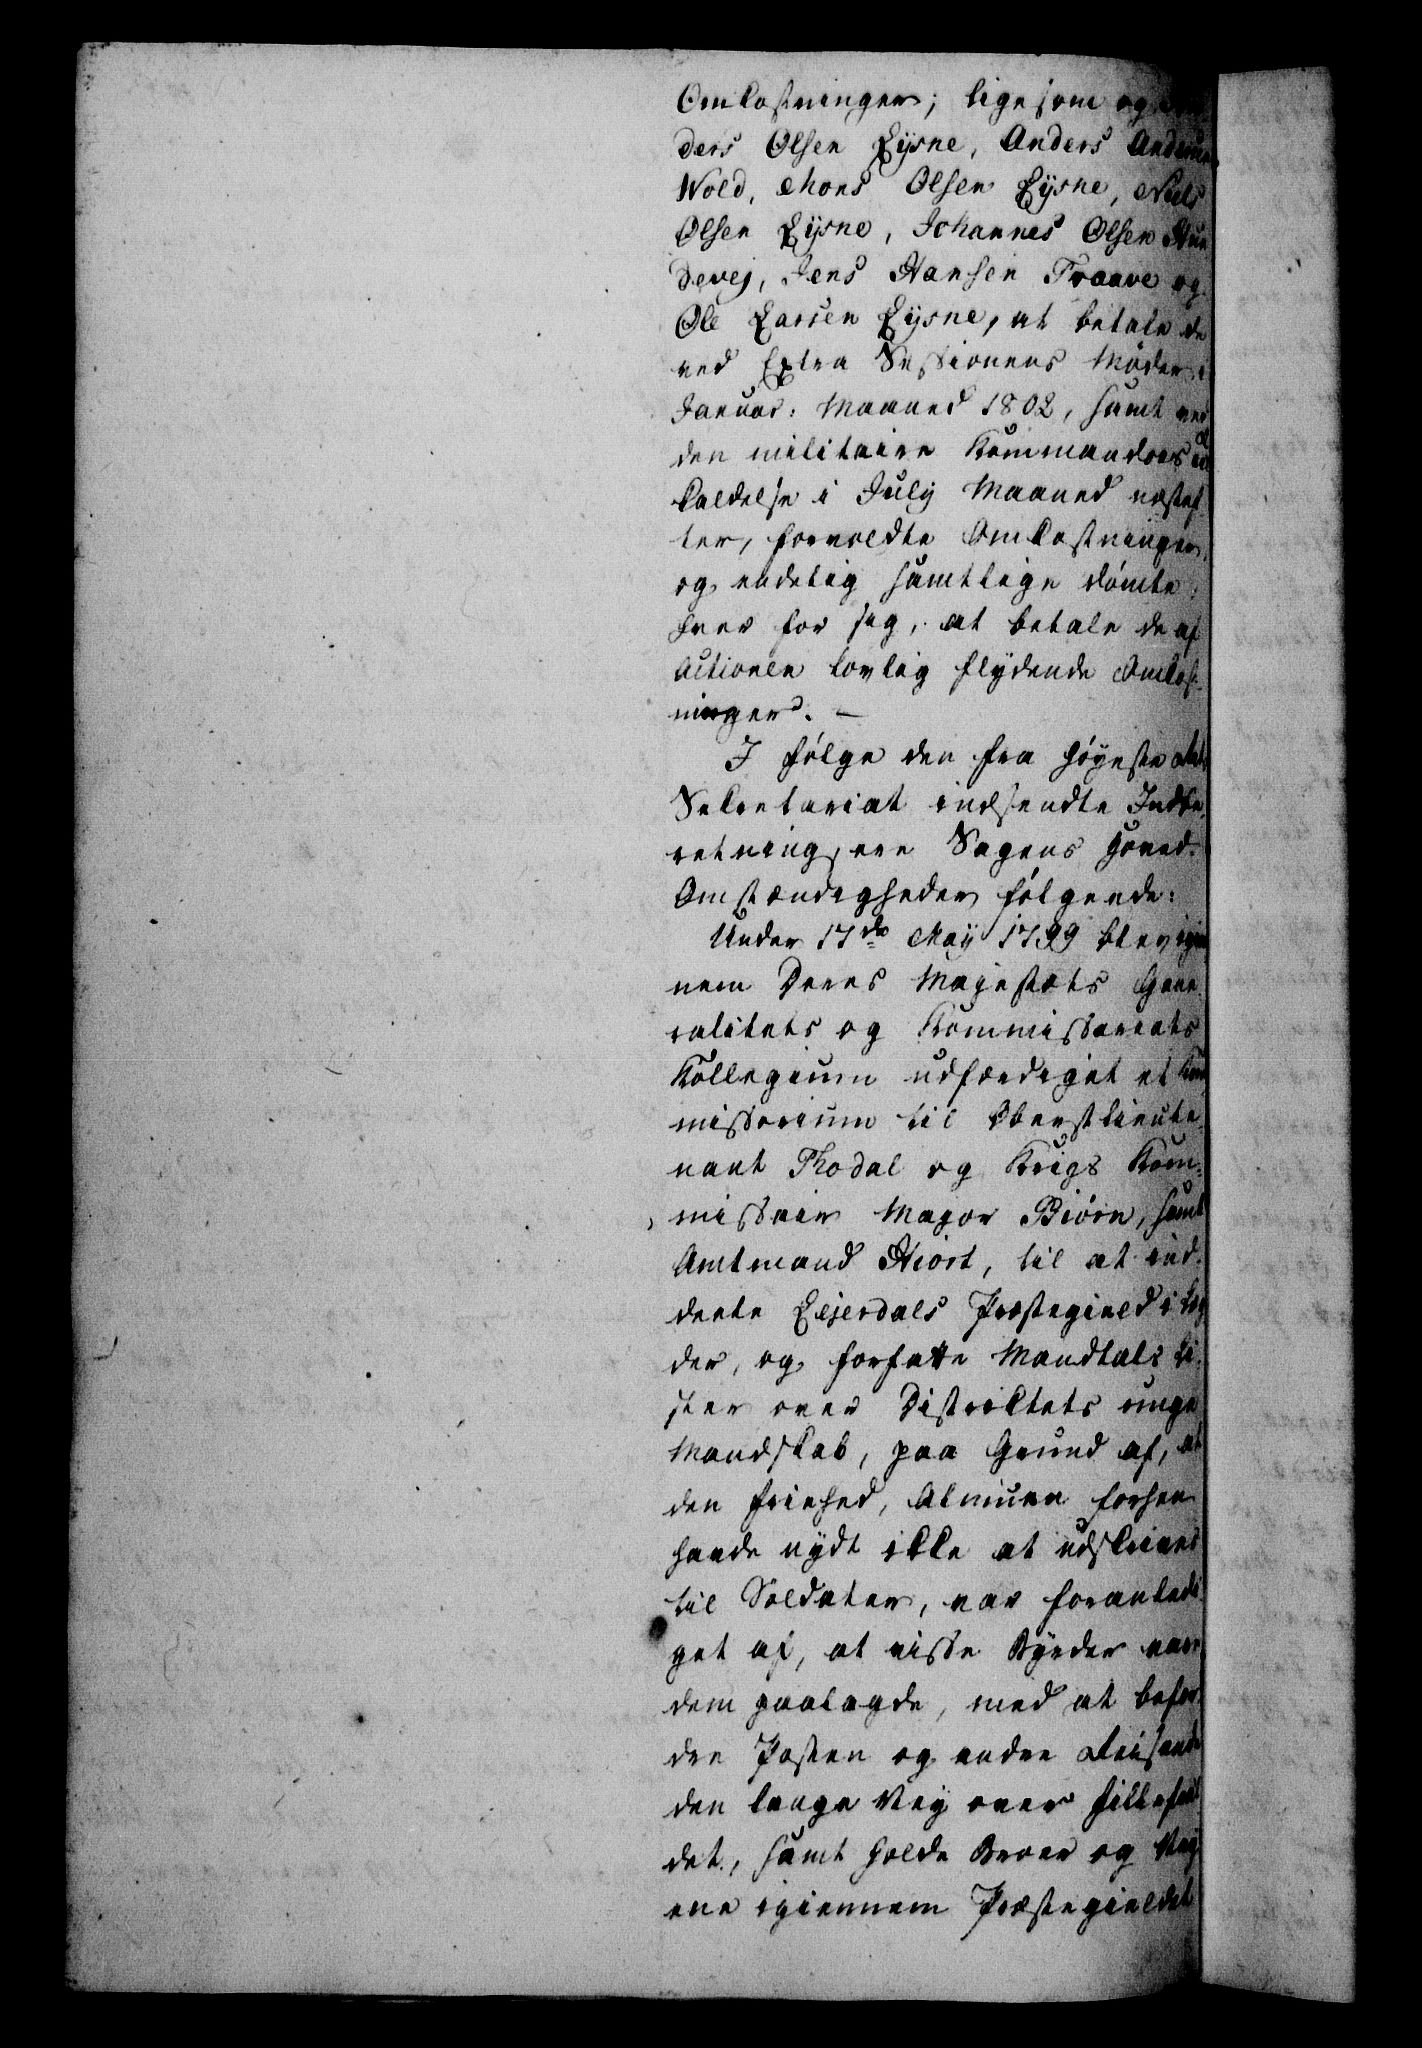 Omkostninger; ligesom og An
ders Olsen Lysne, Anders Andersen
Wold, Mons Olsen Lysne, Niels
Olsen Lysne, Johannes Olsen Hun
devej, Jens Hansen Traave og
Ole Larsen Lysne, at betale de
ved Extra Sessionens Møder i
Januar: Maaned 1802, samt ved
den militaire Kommandoes ud
kaldelse i July Maaned næstef
ter, forvoldte Omkostninger,
og endelig samtlige dømte:
hver for sig, at betale de af
Actionen lovlig flydende Omkost-
ninger. —
I følge den fra Høyeste Rets
Sekretariat indsendte Indbe
retning, ere Sagens Hoved-
Omstændigheder følgende:
Under 17de May 1799 blev igien
nem Deres Majestæts Gene
ralitets og Kommissariats
Kollegium udfærdiget et Kom
missorium til Oberstlieute-
nant Thodal og Krigs Kom-
missair Major Biørn, samt
Amtmand Hiort, til at ind-
deele Lejerdals Præstegield i Læg
der, og forfatte Mandtals Li
ster over Distriktets unge
Mandskab, paa Grund af, at
den Friehed, Almuen forhen
havde nydt ikke at udskrives
til Soldater, var foranledi
get af, at visse Byrder vare
dem paalagde, med at befor
dre Posten og andre Reisende
den lange Vey over Fillefiel
det, samt holde Broer og Vey
ene igiennem Præstegieldet